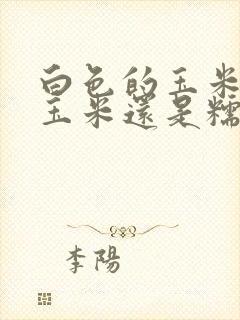 白色的玉米
玉米還是糯
李陽